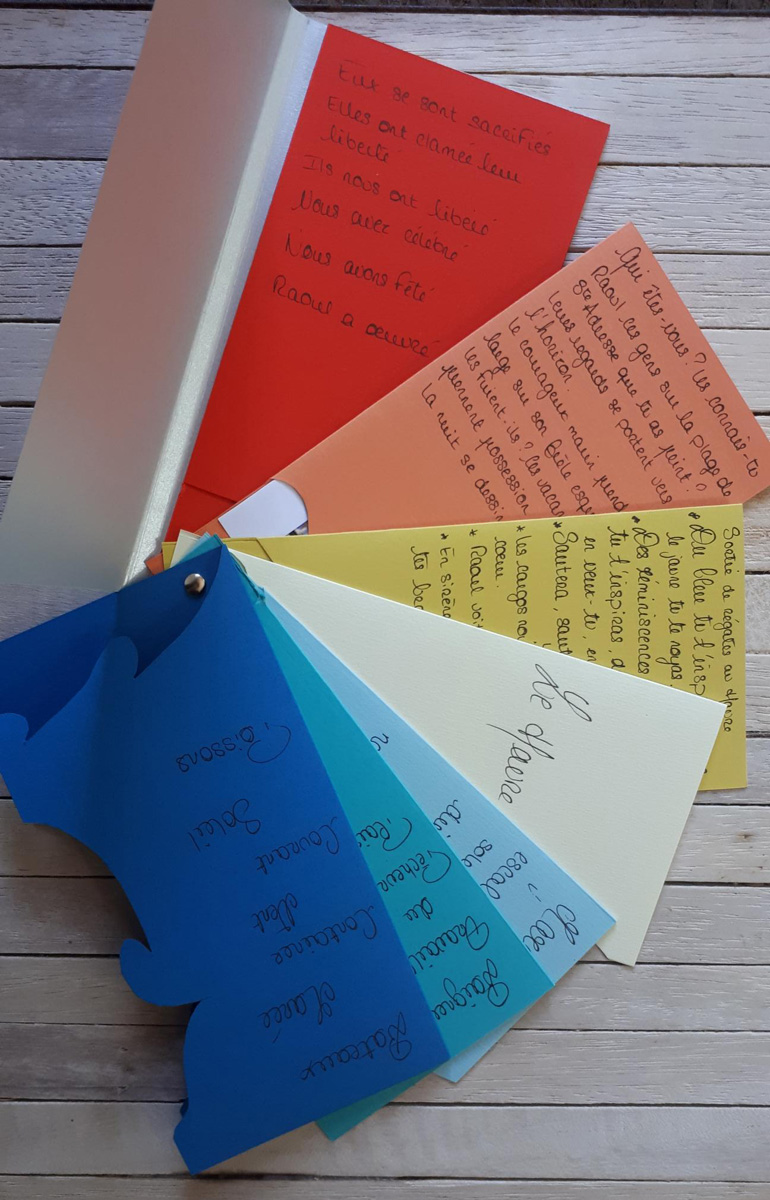 Eux se sont sacrifiés
Elles ont clamée leur
liberté
Ils nous ont libéré
Nous avez célébré
Nous avons fêté
Raoul a oeuvré
Qui êtes-vous? Les connais-tu
Raoul, ces gens sur la plage de
Ste Adresse que tu as peint?
Leurs regards se portent vers
l'horizon.
Le courageux marin prend
large sur son frêle esqu
Les fuient ils? Les vacan
prennent possession
La nuit se dessin
Sortie de régates au Havre
* Du bleu tu t'insp
le jaune tu te noyas
* Des réminiscences
tu t'inspiras, a
en veux-tu, en
* Sautera, saut
* Les cargos no
coeur.
* Raoul voi
* En sirène
tes be
Le Havre
Mer
escal
sole
Baigner
Travail
du
Pêcheur
Plais
Bateaux
Marée
Container
Vent
Courant
Soleil
Poissons